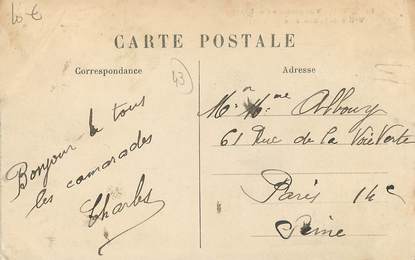 10 €
CARTE POSTALE
Correspondance
Adresse
43
Bonjour à tous
les camarades
Charles
Mr Mme Abbouy
61 Rue de la Voie Verte
Paris 14e
Seine